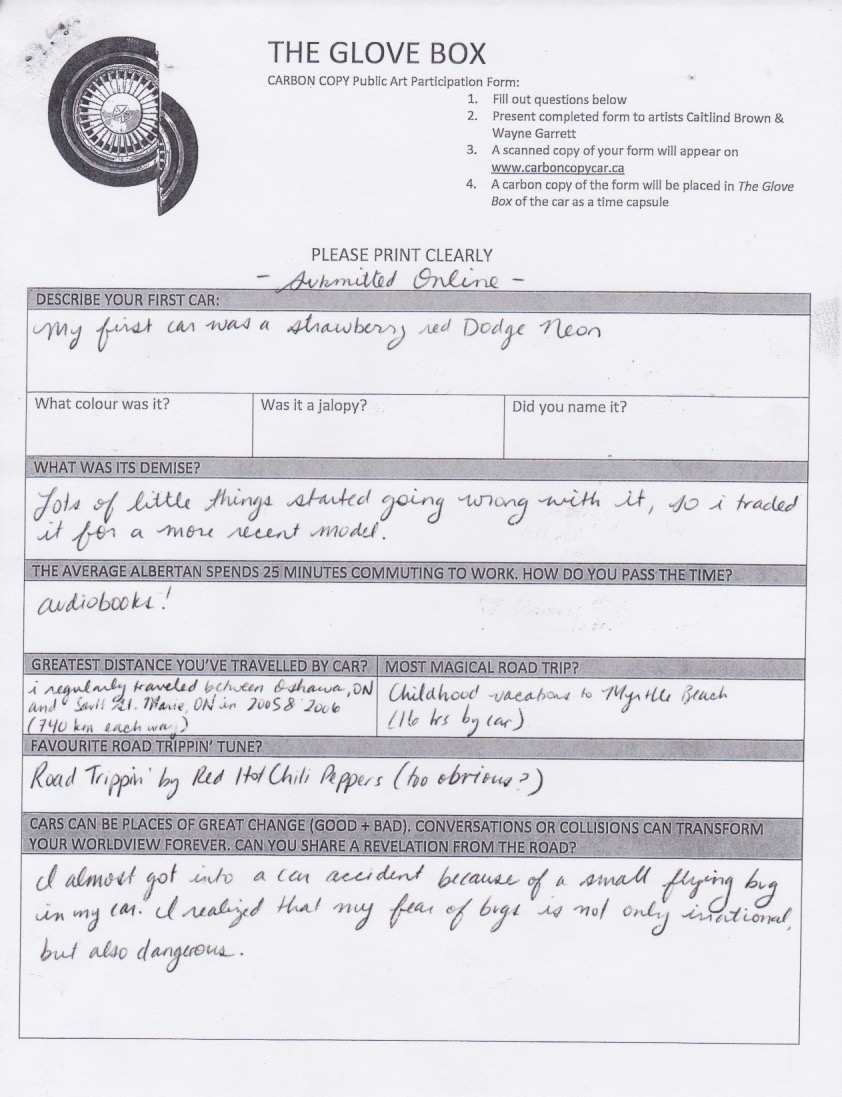 THE GLOVE BOX
CARBON COPY Public Art Participation Form:
1. Fill out questions below
2. Present completed form to artists Caitlind Brown &
Wayne Garrett
3. A scanned copy of your form will appear on
www.carboncopycar.ca
4. A carbon copy of the form will be placed in The Glove
Box of the car as a time capsule
PLEASE PRINT CLEARLY
- Submitted Online -
DESCRIBE YOUR FIRST CAR:
My first car was a strawberry red Dodge Neon
What colour was it?
Was it a jalopy?
Did you name it?
WHAT WAS ITS DEMISE?
Lots of little things started going wrong with it, so i traded
it for a more recent model.
THE AVERAGE ALBERTAN SPENDS 25 MINUTES COMMUTING TO WORK. HOW DO YOU PASS THE TIME?
audiobooks!
GREATEST DISTANCE YOU'VE TRAVELLED BY CAR?
i regularly traveled between Oshawa, ON
and Sault St. Marie, ON in 2005 & 2006
(740 km each way)
MOST MAGICAL ROAD TRIP?
Childhood vacations to Myrtle Beach
(16 hrs by car)
FAVOURITE ROAD TRIPPIN' TUNE?
Road Trippin' by Red Hot Chili Peppers (too obvious?)
CARS CAN BE PLACES OF GREAT CHANGE (GOOD + BAD). CONVERSATIONS OR COLLISIONS CAN TRANSFORM
YOUR WORLDVIEW FOREVER. CAN YOU SHARE A REVELATION FROM THE ROAD?
I almost got into a car accident because of a small flying bug
in my car. I realized that my fear of bugs is not only irrational,
but also dangerous.